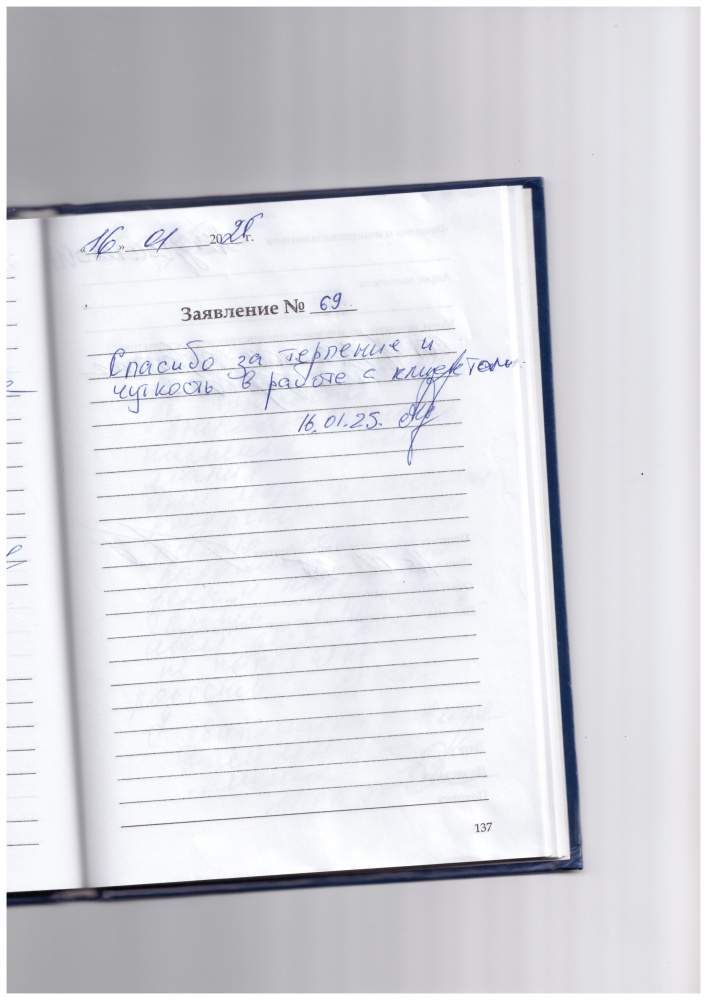 «16» 01 2025 г.
Заявление № 69
Спасибо за терпение и
чуткость в работе с клиентом.
16.01.25.
137